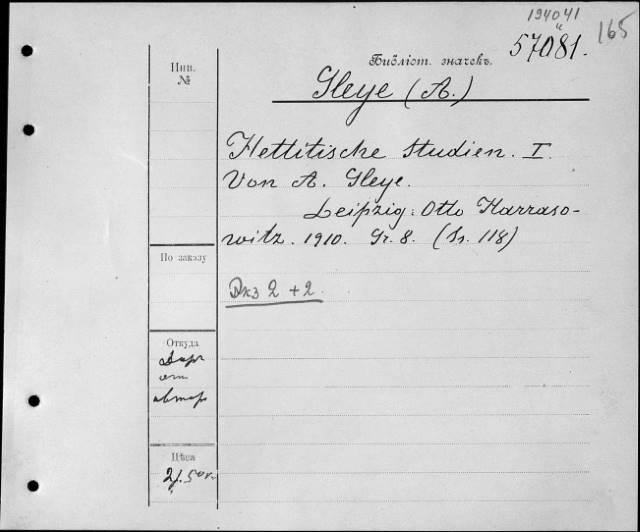 194041
165
57081.
Инв.
№
Библіот. значекъ.
Gleye (A.)
Hettitische Studien. I.
Von A. Gleye.
Leipzig: Otto Harraso-
witz. 1910. Gr. 8. (Ss. 118)
По заказу
Экз 2 + 2
Откуда
Дар
от
автора
Цѣна
2 f. 50